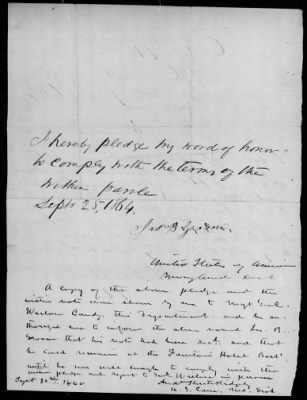 I hereby pledge my word of honor
to comply with the terms of the
within parole
Sept 25, 1864.
Jno B
United States of America
Maryland
A copy of the above pledge and the
within note was shown by me to Majr Genl.
Wallace Comdg. this Department and he au-
thorized me to inform the above named Jno. B.
that his note had been recd. and that
he could remain at the Hotel Balt
until he was well enough to comply with the
above pledge and report to Genl Wallace in person
Sept 30th 1864
U. S. Com.